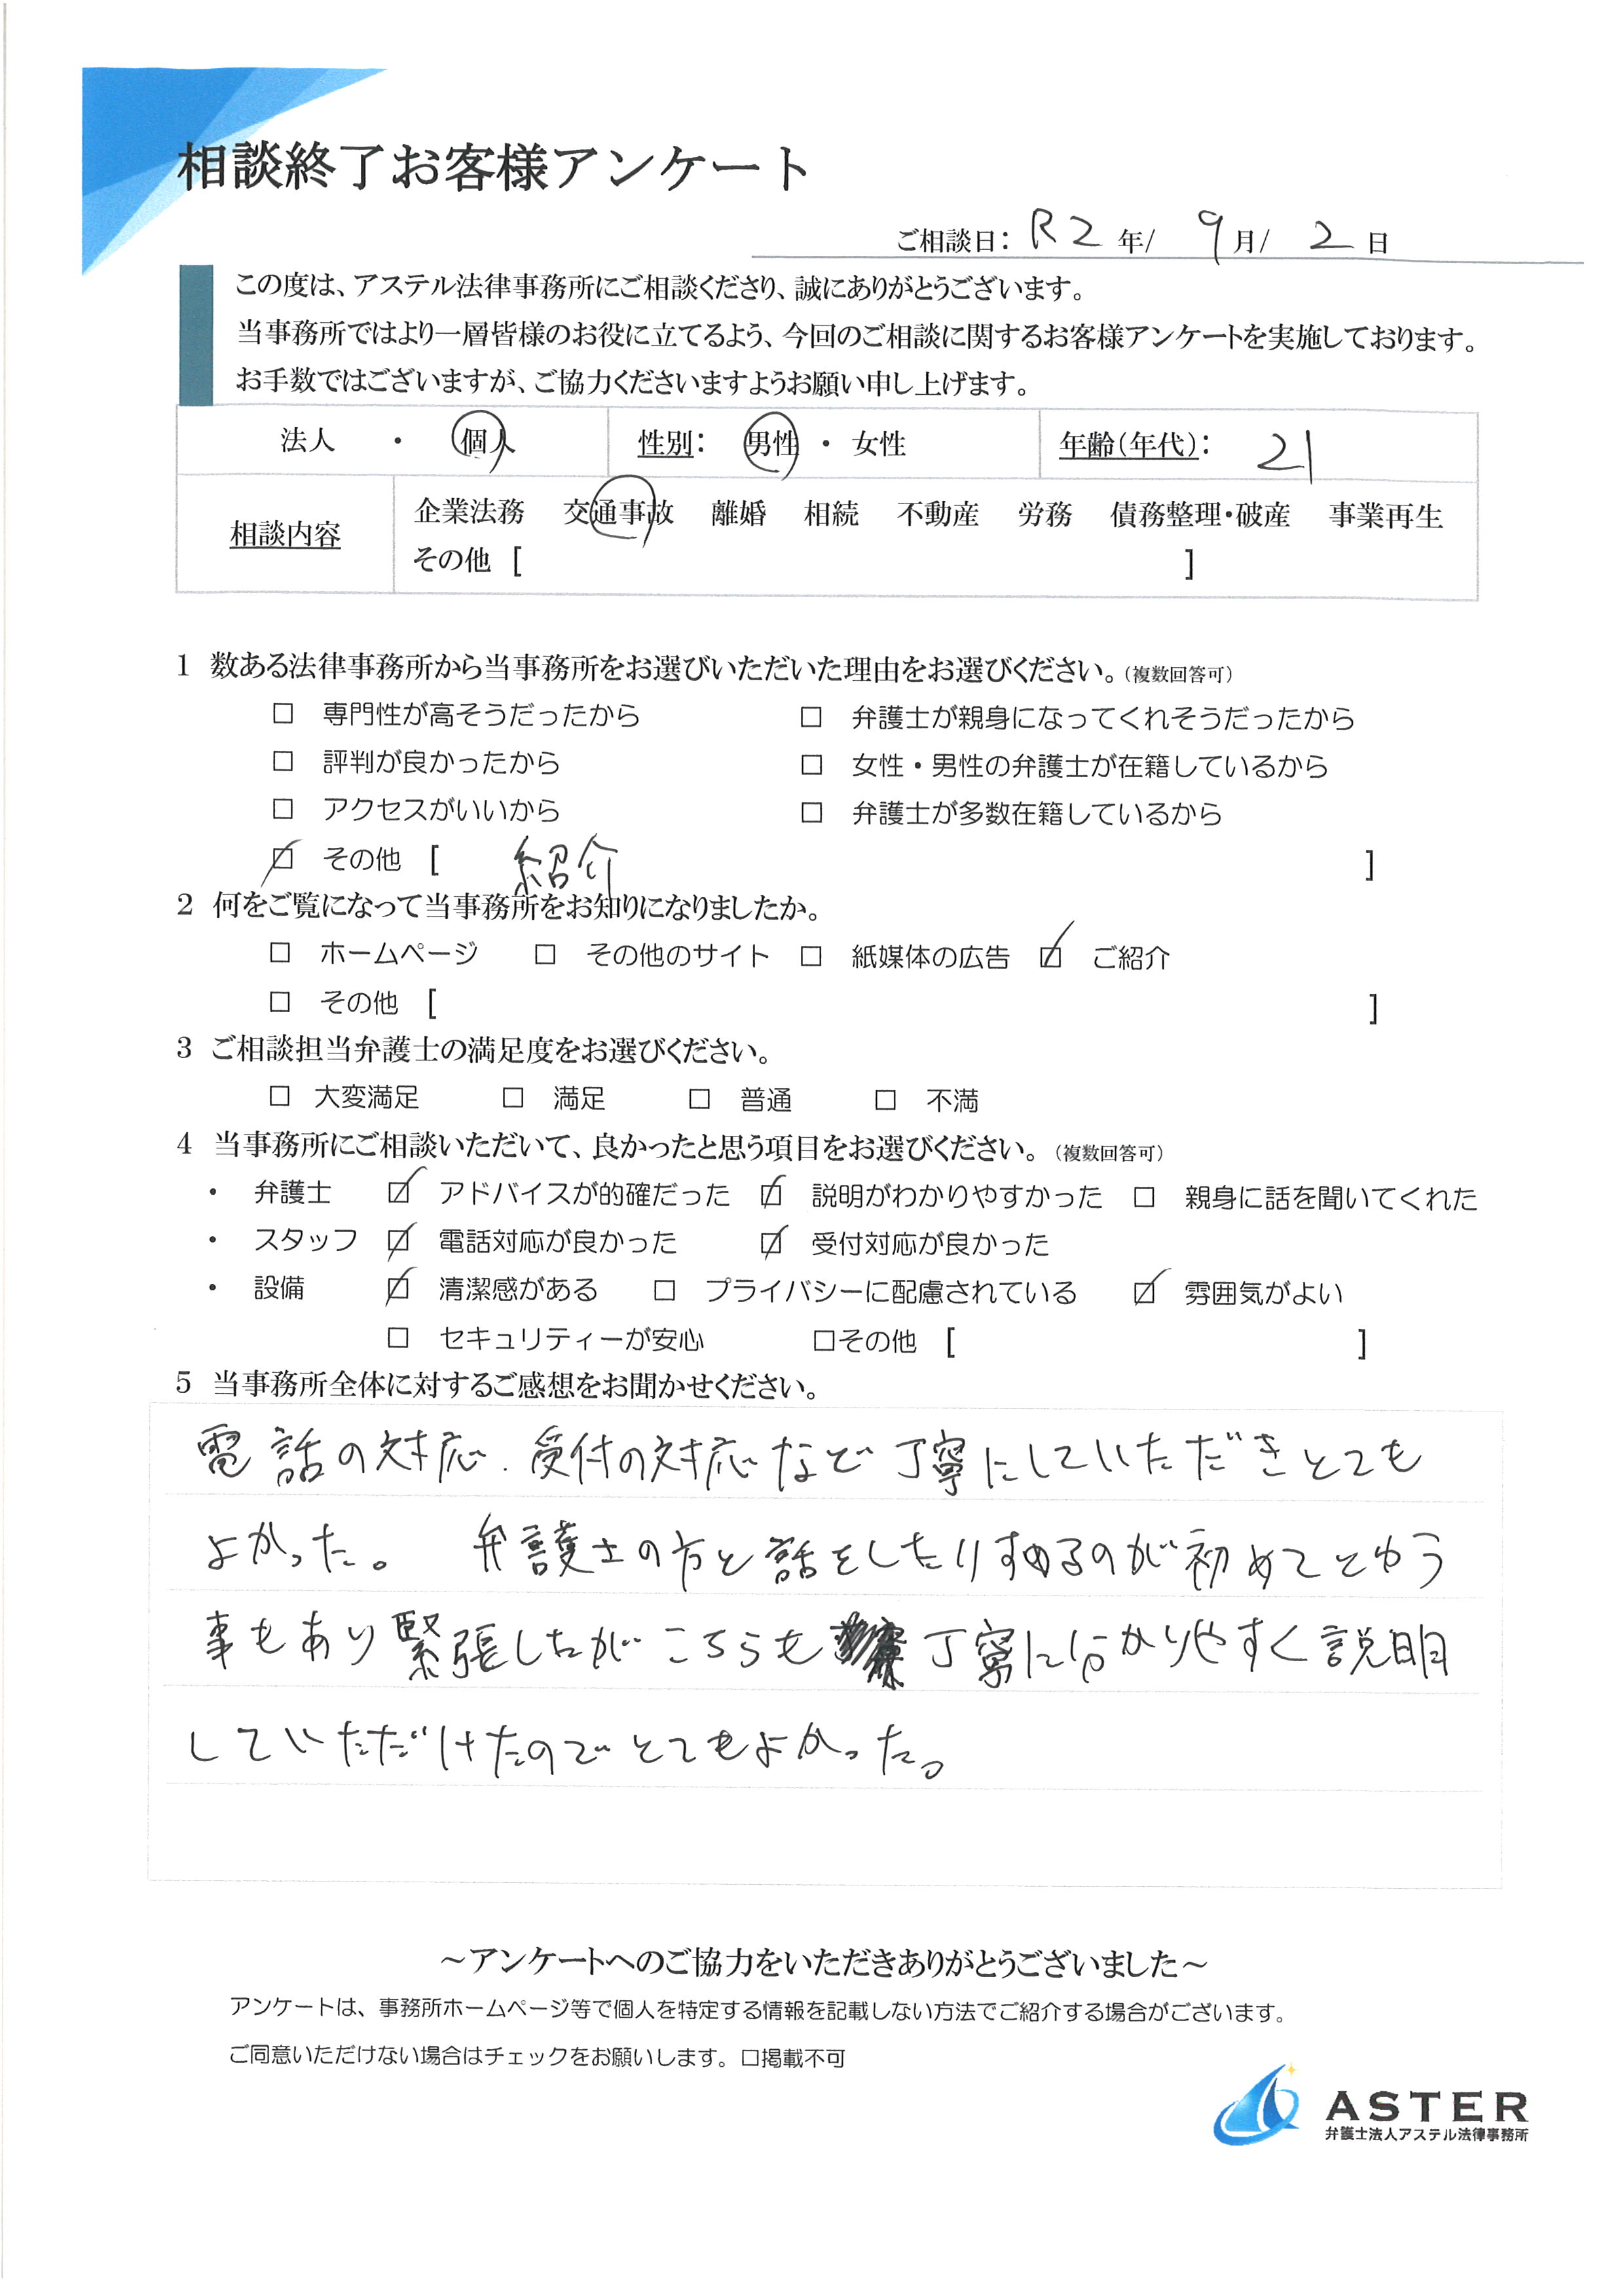 相談終了お客様アンケート
ご相談日: R2 年/ 9 月/ 2 日
この度は、アステル法律事務所にご相談くださり、誠にありがとうございます。
当事務所ではより一層皆様のお役に立てるよう、今回のご相談に関するお客様アンケートを実施しております。
お手数ではございますが、ご協力くださいますようお願い申し上げます。
法人 ・ 個人 性別: 男性 ・ 女性 年齢(年代): 21
相談内容 企業法務 交通事故 離婚 相続 不動産 労務 債務整理・破産 事業再生
その他 [ ]
1 数ある法律事務所から当事務所をお選びいただいた理由をお選びください。(複数回答可)
□ 専門性が高そうだったから □ 弁護士が親身になってくれそうだったから
□ 評判が良かったから □ 女性・男性の弁護士が在籍しているから
□ アクセスがいいから □ 弁護士が多数在籍しているから
☑ その他 [ 紹介 ]
2 何をご覧になって当事務所をお知りになりましたか。
□ ホームページ □ その他のサイト □ 紙媒体の広告 ☑ ご紹介
□ その他 [ ]
3 ご相談担当弁護士の満足度をお選びください。
□ 大変満足 □ 満足 □ 普通 □ 不満
4 当事務所にご相談いただいて、良かったと思う項目をお選びください。(複数回答可)
・ 弁護士 ☑ アドバイスが的確だった ☑ 説明がわかりやすかった □ 親身に話を聞いてくれた
・ スタッフ ☑ 電話対応が良かった ☑ 受付対応が良かった
・ 設備 ☑ 清潔感がある □ プライバシーに配慮されている ☑ 雰囲気がよい
□ セキュリティーが安心 □その他 [ ]
5 当事務所全体に対するご感想をお聞かせください。
電話の対応、受付の対応など丁寧にしていただきとても
よかった。 弁護士の方と話をしたりするのが初めてとゆう
事もあり緊張したがこちらも丁寧に分かりやすく説明
していただけたのでとてもよかった。
～アンケートへのご協力をいただきありがとうございました～
アンケートは、事務所ホームページ等で個人を特定する情報を記載しない方法でご紹介する場合がございます。
ご同意いただけない場合はチェックをお願いします。□掲載不可
ASTER
弁護士法人アステル法律事務所